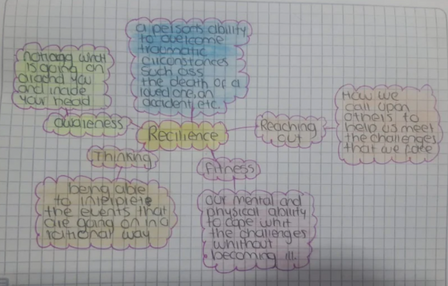 a persons ability
to overcome
traumatic
circonstances
such ass
the death of a
loved one, an
accident, etc.
noticing what
is going on
around you
and inside
your head
awareness
Recilience
Reaching
out
How we
call upon
others to
help us meet
the challenges
that we face
Thinking
Fitness
being able
to interprete
the events that
are going on in a
rational way
our mental and
physical ability
to cope whit
the challenges
whithout
becoming ill.